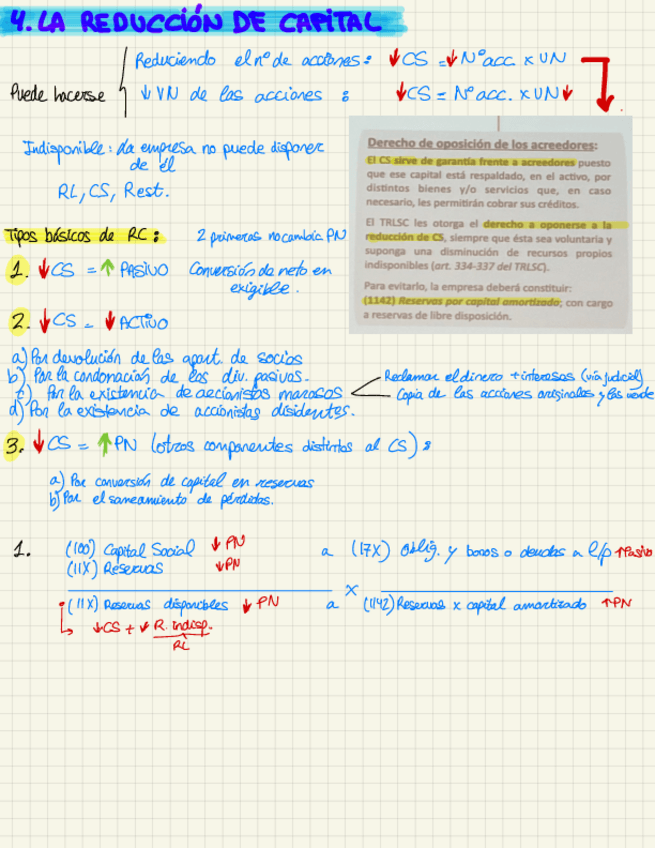 4. LA REDUCCIÓN DE CAPITAL
Puede hacerse
Reduciendo el nº de acciones: ↓CS = ↓Nº acc. x VN
↓ VN de las acciones : ↓CS = Nº acc. x VN↓
Indisponible: la empresa no puede disponer
de él
RL, CS, Rest.
Derecho de oposición de los acreedores:
El CS sirve de garantía frente a acreedores puesto
que ese capital está respaldado, en el activo, por
distintos bienes y/o servicios que, en caso
necesario, les permitirán cobrar sus créditos.
El TRLSC les otorga el derecho a oponerse a la
reducción de CS, siempre que ésta sea voluntaria y
suponga una disminución de recursos propios
indisponibles (art. 334-337 del TRLSC).
Para evitarlo, la empresa deberá constituir:
(1142) Reservas por capital amortizado; con cargo
a reservas de libre disposición.
Tipos básicos de RC: 2 primeras no cambia PN
1. ↓CS = ↑ PASIVO Conversión de neto en
exigible.
2. ↓CS = ↓ ACTIVO
a) Por devolución de las aport. de socios
b) Por la condonación de los div. pasivos.
c) Por la existencia de accionistas morosos
Reclamar el dinero + intereses (vía judicial)
Copia de las acciones originales y las vende
d) Por la existencia de accionistas disidentes.
3. ↓CS = ↑PN (otros componentes distintos al CS):
a) Por conversión de capital en reservas
b) Por el saneamiento de pérdidas.
1. (100) Capital Social ↓ PN a (17X) Oblig. y bonos o deudas a l/p ↑Pasivo
(11X) Reservas ↓PN
x
(11X) Reservas disponibles ↓ PN a (1142) Reservas x capital amortizado ↑PN
↓CS + ↓ R. indisp.
RL